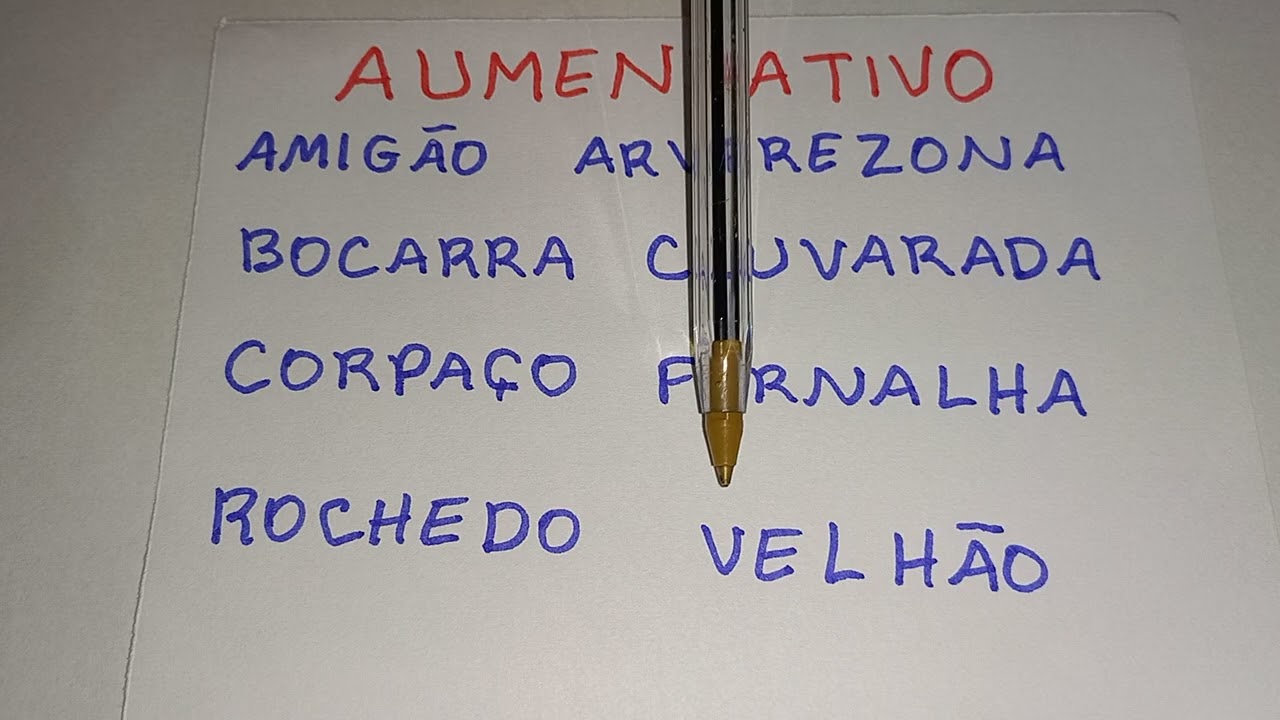 AUMENTATIVO
AMIGÃO ARVEREZONA
BOCARRA CHUVARADA
CORPAÇO FORNALHA
ROCHEDO VELHÃO